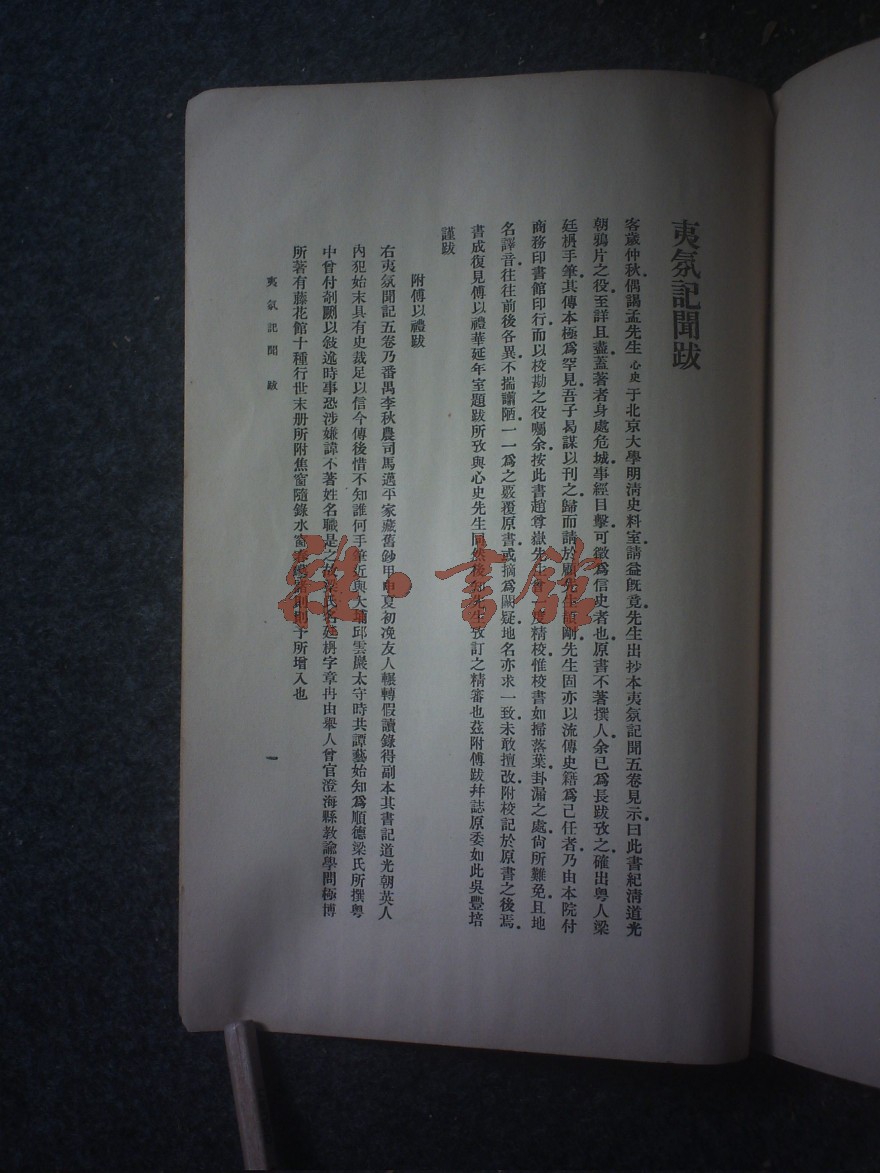 夷氛記聞跋
客歲仲秋偶謁孟先生心史于北京大學明清史料室請益旣竟先生出抄本夷氛記聞五卷見示曰此書紀淸道光
朝鴉片之役至詳且盡蓋著者身處危城事經目擊可徵爲信史者也原書不著撰人余已爲長跋攷之確出粤人梁
廷枏手筆其傳本極爲罕見吾子曷謀以刊之歸而請於顧先生頡剛先生固亦以流傳史籍爲己任者乃由本院付
商務印書館印行而以校勘之役囑余按此書趙尊嶽先生曾一度精校惟校書如掃落葉卦漏之處尙所難免且地
名譯音往往前後各異不揣譾陋一一爲之覈覆原書或摘爲闕疑地名亦求一致未敢擅改附校記於原書之後焉
書成復見傅以禮華延年室題跋所攷與心史先生同然後知先生攷訂之精審也茲附傅跋幷誌原委如此吳豐培
謹跋
附傅以禮跋
右夷氛聞記五卷乃番禺李秋農司馬邁平家藏舊鈔甲申夏初凂友人輾轉假讀錄得副本其書記道光朝英人
內犯始末具有史裁足以信今傳後惜不知誰何手筆近與大埔邱雲巖太守時共譚藝始知爲順德梁氏所撰粤
中曾付剞劂以敍述時事恐涉嫌諱不著姓名職是之故梁氏名廷枏字章冉由舉人曾官澄海縣敎諭學問極博
所著有藤花館十種行世末册所附焦窗隨錄水窗則予所增入也
夷氛記聞 跋
一
雒·書館